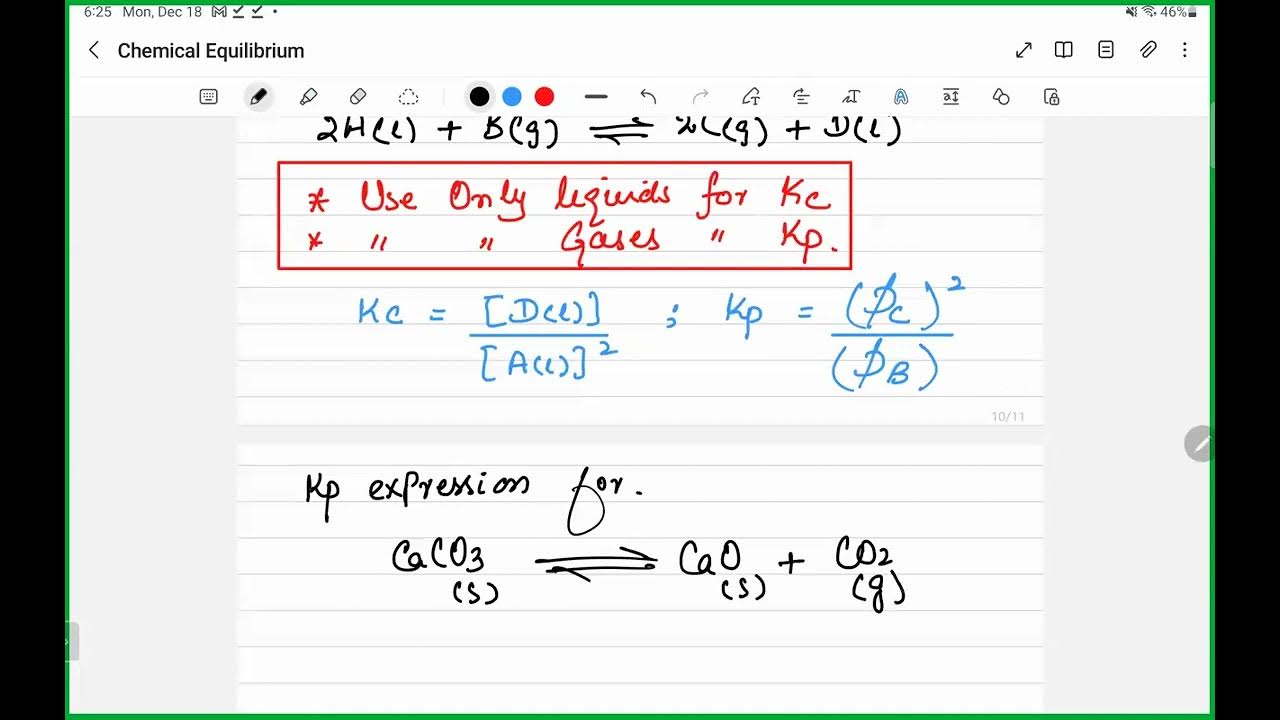 6:25 Mon, Dec 18 46%
Chemical Equilibrium
2A(l) + B(g) ⇌ 2C(g) + D(l)
* Use Only liquids for Kc
* " " Gases " Kp.
Kc = [D(l)] / [A(l)]² ; Kp = (pC)² / (pB)
10/11
Kp expression for.
CaCO3 (s) ⇌ CaO (s) + CO2 (g)